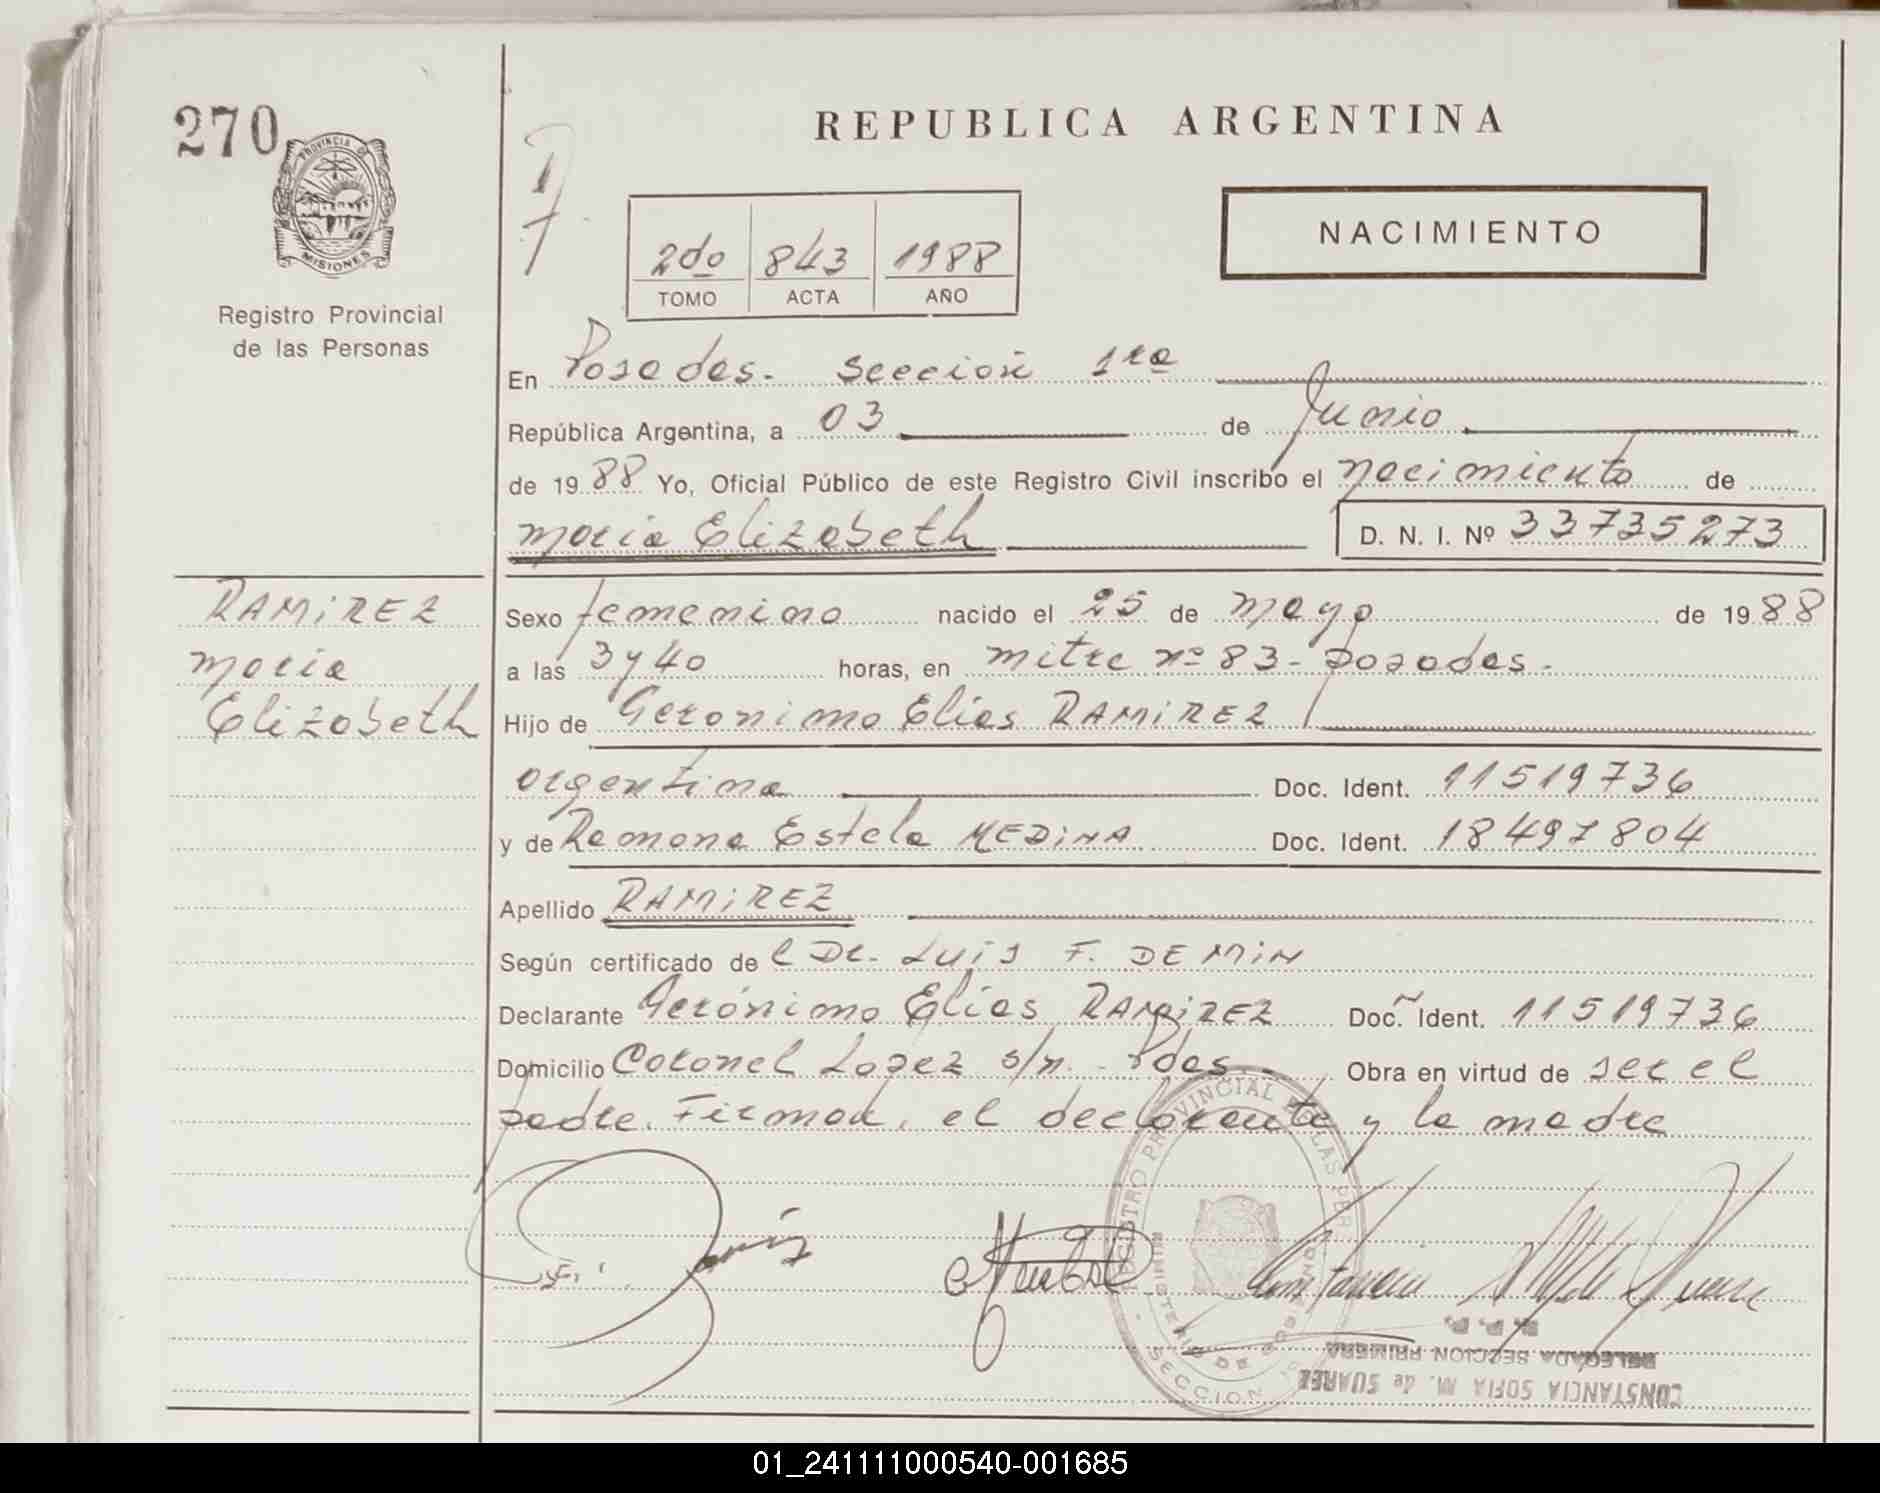 270
PROVINCIA DE
MISIONES
Registro Provincial
de las Personas
REPUBLICA ARGENTINA
NACIMIENTO
2do 843 1988
TOMO ACTA AÑO
En Posadas. Sección 1ra
República Argentina, a 03 de Junio
de 1988 Yo, Oficial Público de este Registro Civil inscribo el nacimiento de
María Elizabeth D. N. I. Nº 33735273
RAMIREZ
María
Elizabeth
Sexo femenino nacido el 25 de mayo de 1988
a las 3 y 40 horas, en mitre nº 83 - posadas.
Hijo de Gerónimo Elías RAMIREZ
argentina Doc. Ident. 11519736
y de Ramona Estela MEDINA Doc. Ident. 18497804
Apellido RAMIREZ
Según certificado de l Dr. LUIS F. DEMIN
Declarante Gerónimo Elías RAMIREZ Doc. Ident. 11519736
Domicilio Coronel Lopez s/n. - Pdas. Obra en virtud de ser el
padre. Firman, el declarante y la madre
REGISTRO PROVINCIAL DE LAS PER
MINISTERIO DE GOBIERNO
SECCION
CONSTANCIA SOFIA M. de SUAREZ
DELEGADA SECCION PRIMERA
R. P. P.
01_241111000540-001685